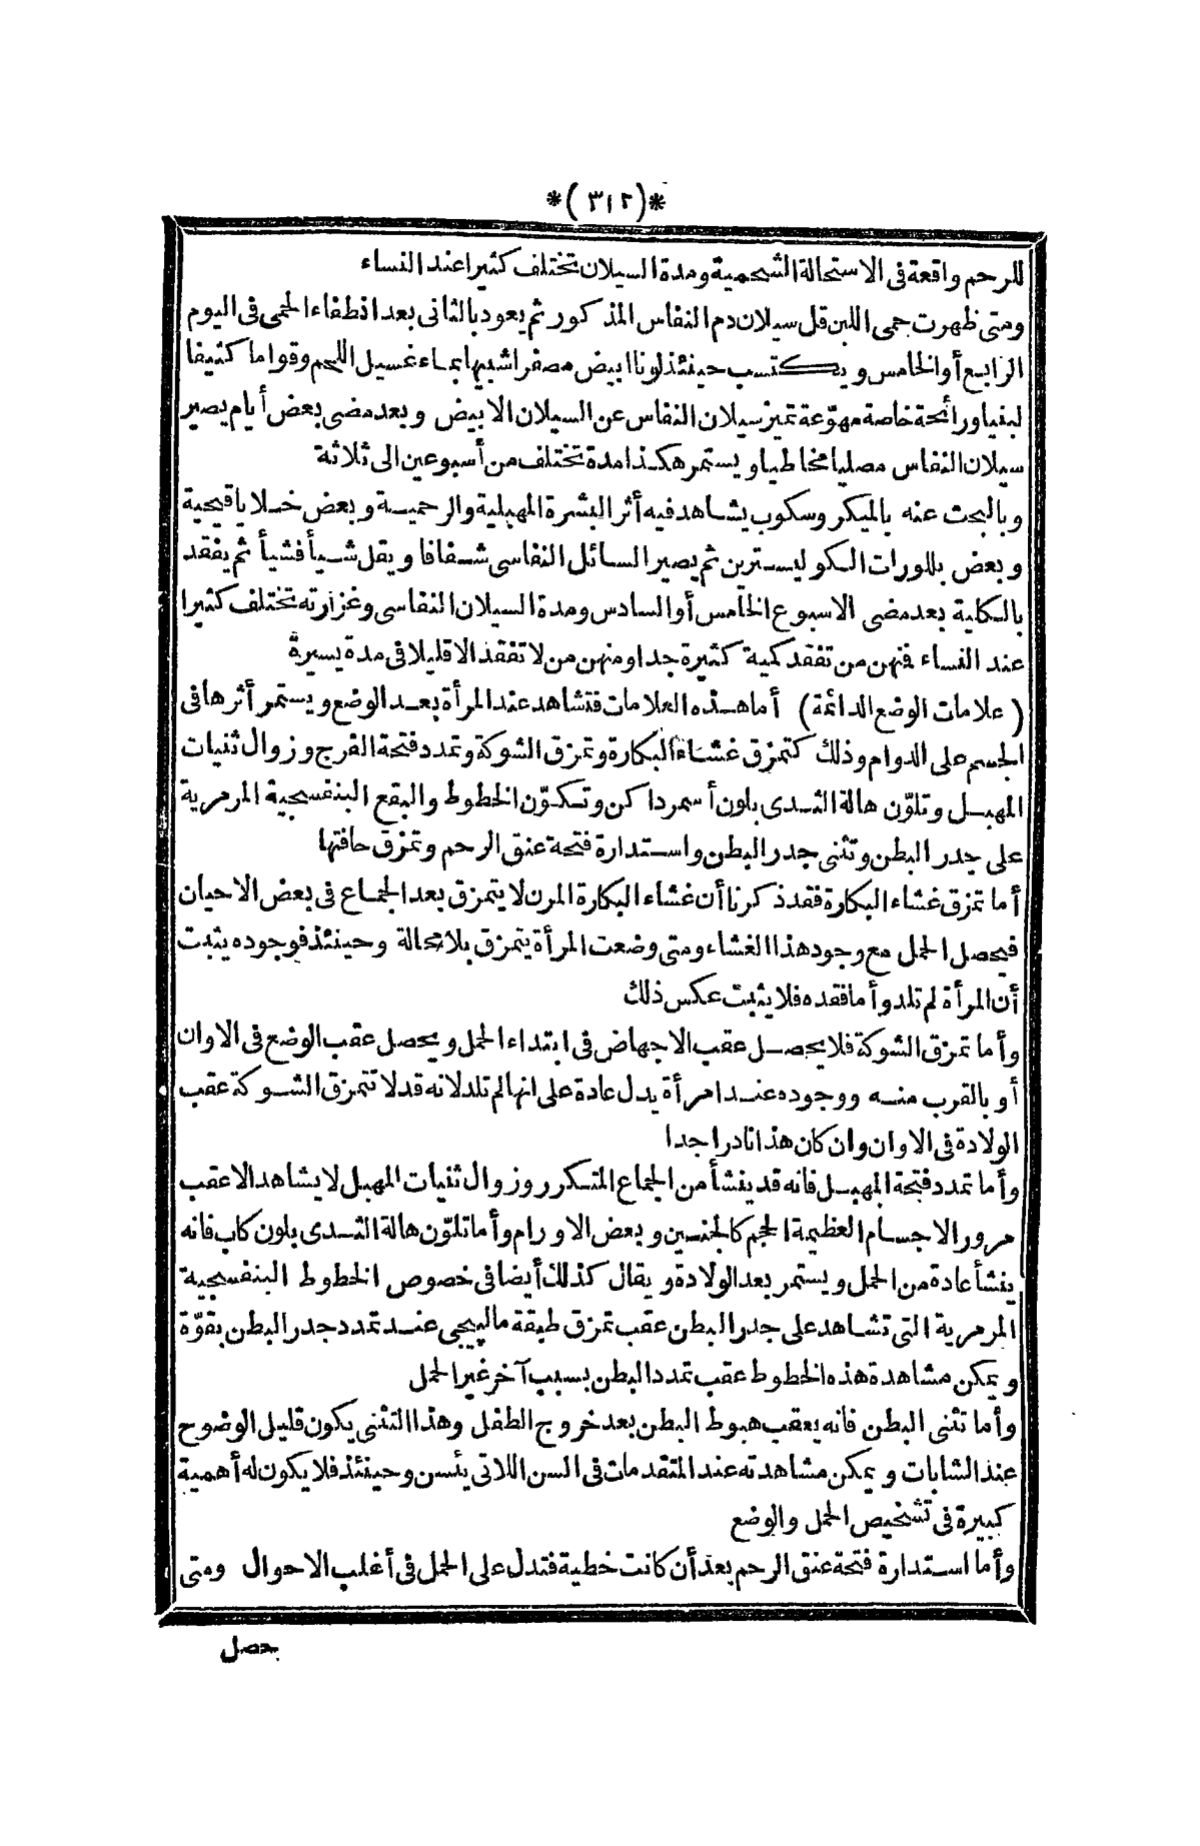 *(٣١٢)*
للرحم واقعة فى الاستحالة الشحمية ومدة السيلان تختلف كثيرا عند النساء
ومتى ظهرت حمى اللبن قل سيلان دم النفاس المذكور ثم يعود بالثانى بعد انطفاء الحمى فى اليوم
الرابع أو الخامس ويكتسب حينئذ لونا ابيض مصفرا شبيها بماء غسيل اللحم وقواما كثيفا
لبنيا ورائحة خاصة مهوّعة تميز سيلان النفاس عن السيلان الابيض وبعد مضى بعض أيام يصير
سيلان النفاس مصليا مخاطيا ويستمر هكذا مدة تختلف من أسبوعين الى ثلاثة
وبالبحث عنه بالميكروسكوب يشاهد فيه أثر البشرة المهبلية والرحمية وبعض خلايا قيحية
وبعض بللورات الكوليسترين ثم يصير السائل النفاسى شفافا ويقل شيأ فشيأ ثم يفقد
بالكلية بعد مضى الاسبوع الخامس أو السادس ومدة السيلان النفاسى وغزارته تختلف كثيرا
عند النساء فنهن من تفقد كمية كثيرة جدا ومنهن من لا تفقد الا قليلا فى مدة يسيرة
(علامات الوضع الدائمة) أما هذه العلامات فتشاهد عند المرأة بعد الوضع ويستمر أثرها فى
الجسم على الدوام وذلك كتمزق غشاء البكارة وتمزق الشوكة وتمدد فتحة الفرج وزوال ثنيات
المهبل وتلوّن هالة الثدى بلون أسمر داكن وتكوّن الخطوط والبقع البنفسجية المرمرية
على جدر البطن وتثنى جدر البطن واستدارة فتحة عنق الرحم وتمزق حافتها
أما تمزق غشاء البكارة فقد ذكرنا أن غشاء البكارة المرن لا يتمزق بعد الجماع فى بعض الاحيان
فيحصل الحمل مع وجود هذا الغشاء ومتى وضعت المرأة يتمزق بلا محالة وحينئذ فوجوده يثبت
أن المرأة لم تلد وأما فقده فلا يثبت عكس ذلك
وأما تمزق الشوكة فلا يحصل عقب الاجهاض فى ابتداء الحمل ويحصل عقب الوضع فى الاوان
أو بالقرب منه ووجوده عند امرأة يدل عادة على انها لم تلد لانه قد لا تتمزق الشوكة عقب
الولادة فى الاوان وان كان هذا نادرا جدا
وأما تمدد فتحة المهبل فانه قد ينشأ من الجماع المتكرر وزوال ثنيات المهبل لا يشاهد الا عقب
مرور الاجسام العظيمة الحجم كالجنين وبعض الاورام وأما تلوّن هالة الثدى بلون كاب فانه
ينشأ عادة من الحمل ويستمر بعد الولادة ويقال كذلك أيضا فى خصوص الخطوط البنفسجية
المرمرية التى تشاهد على جدر البطن عقب تمزق طبقة مالبيجى عند تمدد جدر البطن بقوّة
ويمكن مشاهدة هذه الخطوط عقب تمدد البطن بسبب آخر غير الحمل
وأما تثنى البطن فانه يعقب هبوط البطن بعد خروج الطفل وهذا التثنى يكون قليل الوضوح
عند الشابات ويمكن مشاهدته عند المتقدمات فى السن اللاتى يئسن وحينئذ فلا يكون له أهمية
كبيرة فى تشخيص الحمل والوضع
وأما استدارة فتحة عنق الرحم بعد أن كانت خطية فتدل على الحمل فى أغلب الاحوال ومتى
حصل